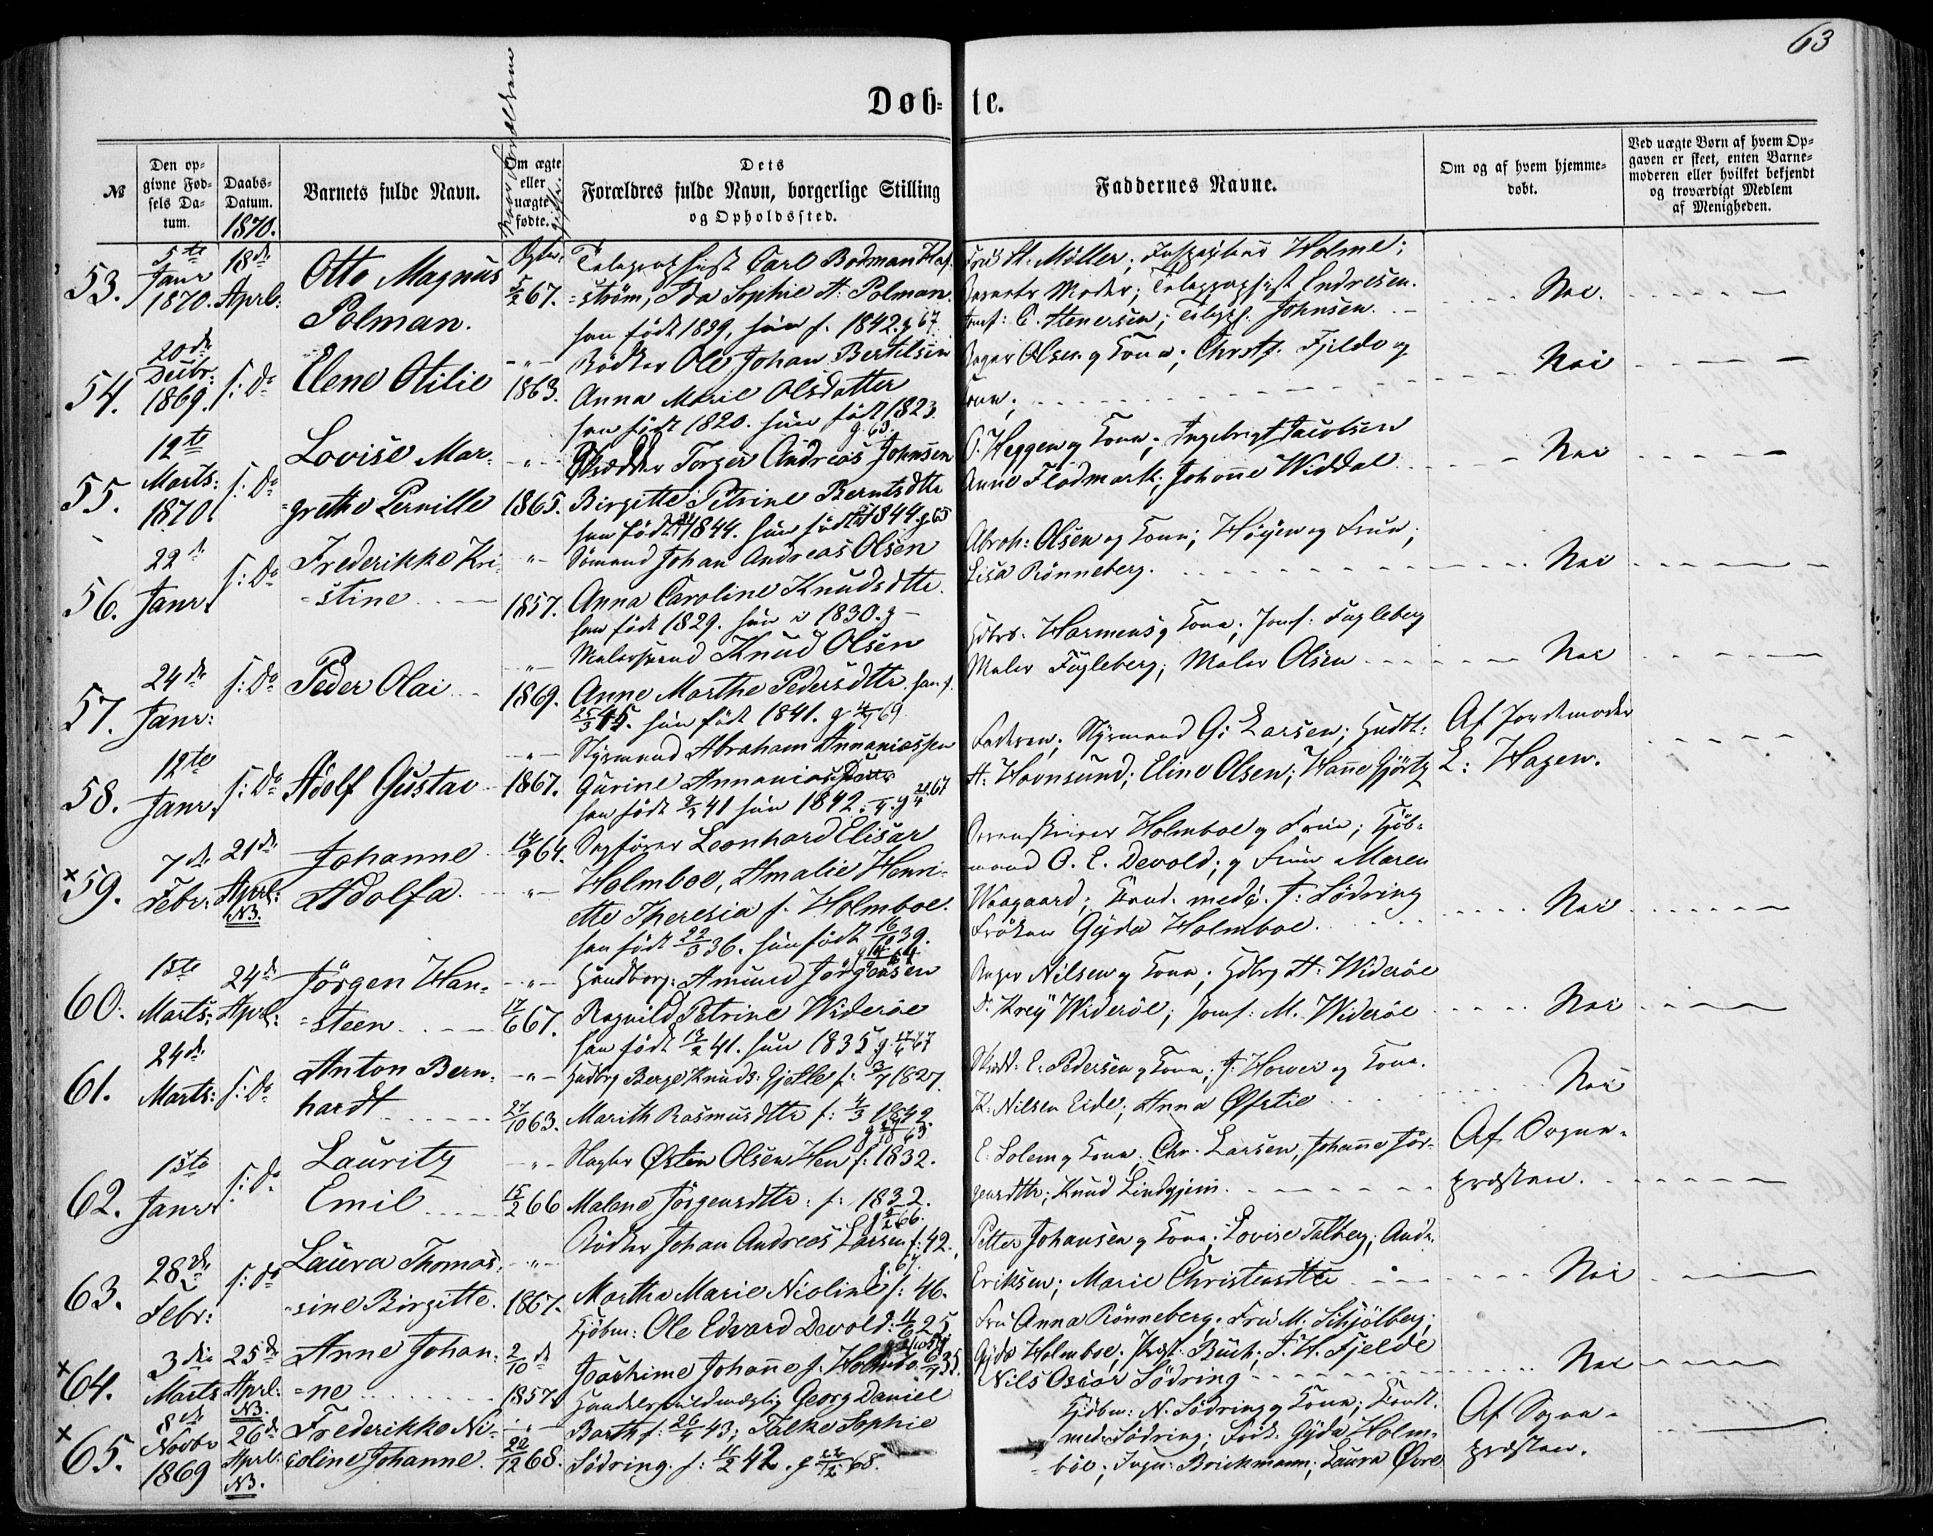 63
Døb- te.
№
Den opgivne Fødsels Datum.
Daabs-Datum.
1870.
Barnets fulde Navn.
Om ægte eller uægte fødte.
Dets Forældres fulde Navn, borgerlige Stilling og Opholdssted.
Faddernes Navne.
Om og af hvem hjemmedøbt.
Ved uægte Børn af hvem Opgaven er skeet, enten Barnemoderen eller hvilket bekjendt og troværdigt Medlem af Menigheden.
53. 5te Janr 1870. 18de Aprl: Otto Magnus Polman.
Ægte. 5/2 67.
Telegraphist Carl Bodman Haf-
=strøm, Ida Sophie A: Polman.
han født 1839, hun f. 1842. g 67
Frue St. Møller; Inspecteur Holme;
Barnets Moder; Telegraphist Endresen.
Jomf: C. Stenersen; Telegph. Johnsen.
Nei.
54. 20de Decbr: 1869. s: Do Elene Otilie
-"- 1863.
Bødker Ole Johan Bertelsen
Anna Marie Olsdatter
han født 1820. hun født 1823.
g. 63.
Bager Olsen og Kone; Christ. Fjeldo og
Kone;
Nei
55. 12te Marts: 1870. s: Do Lovise Mar-
=grethe Pernille
-"- 1865.
Skrædder Torger Andreas Johnsen
Birgitte Petrine Berntsdtr
han født 1844. hun født 1844. g 65
O. Heggen og Kone; Ingebrigt Jacobsen
Anne Flodmark; Johanne Widdal
Nei
56. 22de Janr. s: Do Frederikke Kri-
=stine
-"- 1857.
Sømand Johan Andreas Olsen
Anna Caroline Knudsdtr.
han født 1829. hun i 1830. g -
Abrah: Olsen og Kone; Høyen og Frue;
Lisa Rønneberg.
Nei
57. 24de Janr: s: Do Peder Olai
-"- 1869.
Malersvend Knud Olsen
Anne Marthe Pedersdtr. han f.
25/3 45. hun født 1841. g 69
Hdbrs. Harmens og Kone; Jomf: Fugleberg
Maler Fugleberg; Maler Olsen
Nei
58. 12te Janr. s: Do Adolf Gustav
-"- 1867.
Styrmand Abraham Annaniassen
Gurine Annaniasdtr
han født 41 hun 1842. g 67
Faderen; Styrmand G: Larsen; Hudt:
A. Havnsund; Eline Olsen; Hanne Gjørtz
Af Jordemoder
L: Hagen.
×59. 7de Febr. 21de Aprl: NB. Johanne
Adolfa.
14/9 64. -"-
Sagfører Leonhard Elisar
Holmboe, Amalie Henri-
ette Theresia f. Holmboe.
han født 22/3 36. hun født 16/ 39.
Sorenskriver Holmboe og Frue; Kjøb-
mand O. E. Devold; og Frue Maren
Waagaard; Kand. med. J: Lødring
Frøken Gyda Holmboe.
Nei
60. 15te Marts: 24de Aprl: Jørgen Han-
=steen
-"- 17/6 67.
Haandverk: Amund Jørgensen
Ragnild Petrine Widerøe
han født 13/2 41. hun 1835 g 17/6 67
Bager Nilsen og Kone; Hdbrg A: Widerøe
D: Krey Widerøe; Jomf: M. Widerøe
Nei
61. 24de Marts: s: Do Anton Bern-
hardt
-"- 27/10 63.
Hudbrg Berge Knuds: Gjelle f: 1827.
Marith Rasmusdtr f: 4/3 1842.
g 27/10 63
Skrdd: E: Pedersen og Kone; J: Hover og Kone.
K: Nilsen Eide; Anna Øfstie
Nei
62. 15te Janr s: Do Lauritz
Emil
-"- 15/2 66
Slagter Østen Olsen Hen f: 1832.
Malene Jørgensdtr: f: 1832.
g 15/2 66.
E. Solem og Kone; Chr. Larsen; Johanne Jør-
gensdtr; Knud Lindgjem.
Af Sogne-
præsten.
63. 28de Febr: s: Do Laura Thomas-
=sine Birgitte.
-"- 1867.
Bødker Johan Andreas Larsen f: 42.
g. 67
Marthe Marie Nicoline f: 46.
Petter Johansen og Kone; Lovise Talberg; Andr.
Eriksen; Marie Christensdtr
Nei
×64. 3die Marts 25de Aprl: NB. Anne Johan-
=ne
2/10 de 1857.
Kjøbm: Ole Edvard Devold: 4/6 25
Joachime Johanne f. Holmbo. 35.
Fru Anna Rønneberg. Frøi M. Schjølberg;
Gyda Holmboe; Prgst. Buch; J. H. Fjelde
Nils Oscar Lødring
Nei
×65. 8de Novbr 1869 26de Aprl: NB. Frederikke Ni-
coline Johanne.
-"- 22/12 68.
Handelsfuldmægtig Georg Daniel
Barth f: 26/4 43; Talke Sophie
Lødring. f: 11/2 42. g 22/12 68.
Kjøbm: N. Lødring og Kone; Kand.
med. Lødring; Frøk. Gyda Holm-
=boe; Ingn: Brickmann; Laura Øvre
Af Sogne-
præsten.